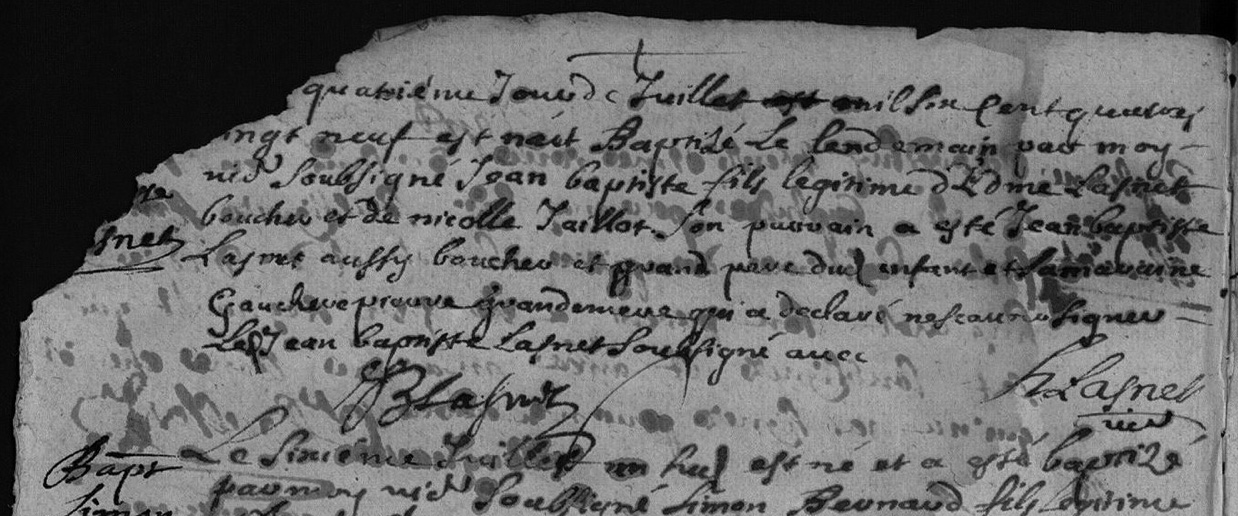 quatrième Jour de Juillet mil six Cent quatres
ingt neuf est nait Baptizé Le lendemain par moy
vic̃ soubsigné Jean baptiste fils legitime d'Edmé Lasnet
boucher et de nicolle Jaillot Son parrain a esté Jean baptiste
snet
Lasnet aussy boucher et grand pere dud enfant et La maraine
grandemere qui a declaré ne scavoir signer
Led Jean baptiste Lasnet Soubsigné avec
JB Lasnet
Lasnet
vic
Bapt
Le Sixième Juillet est né et a esté baptizé
par moy vic̃ Soubsigné Simon Bernard fils legitime
Simon